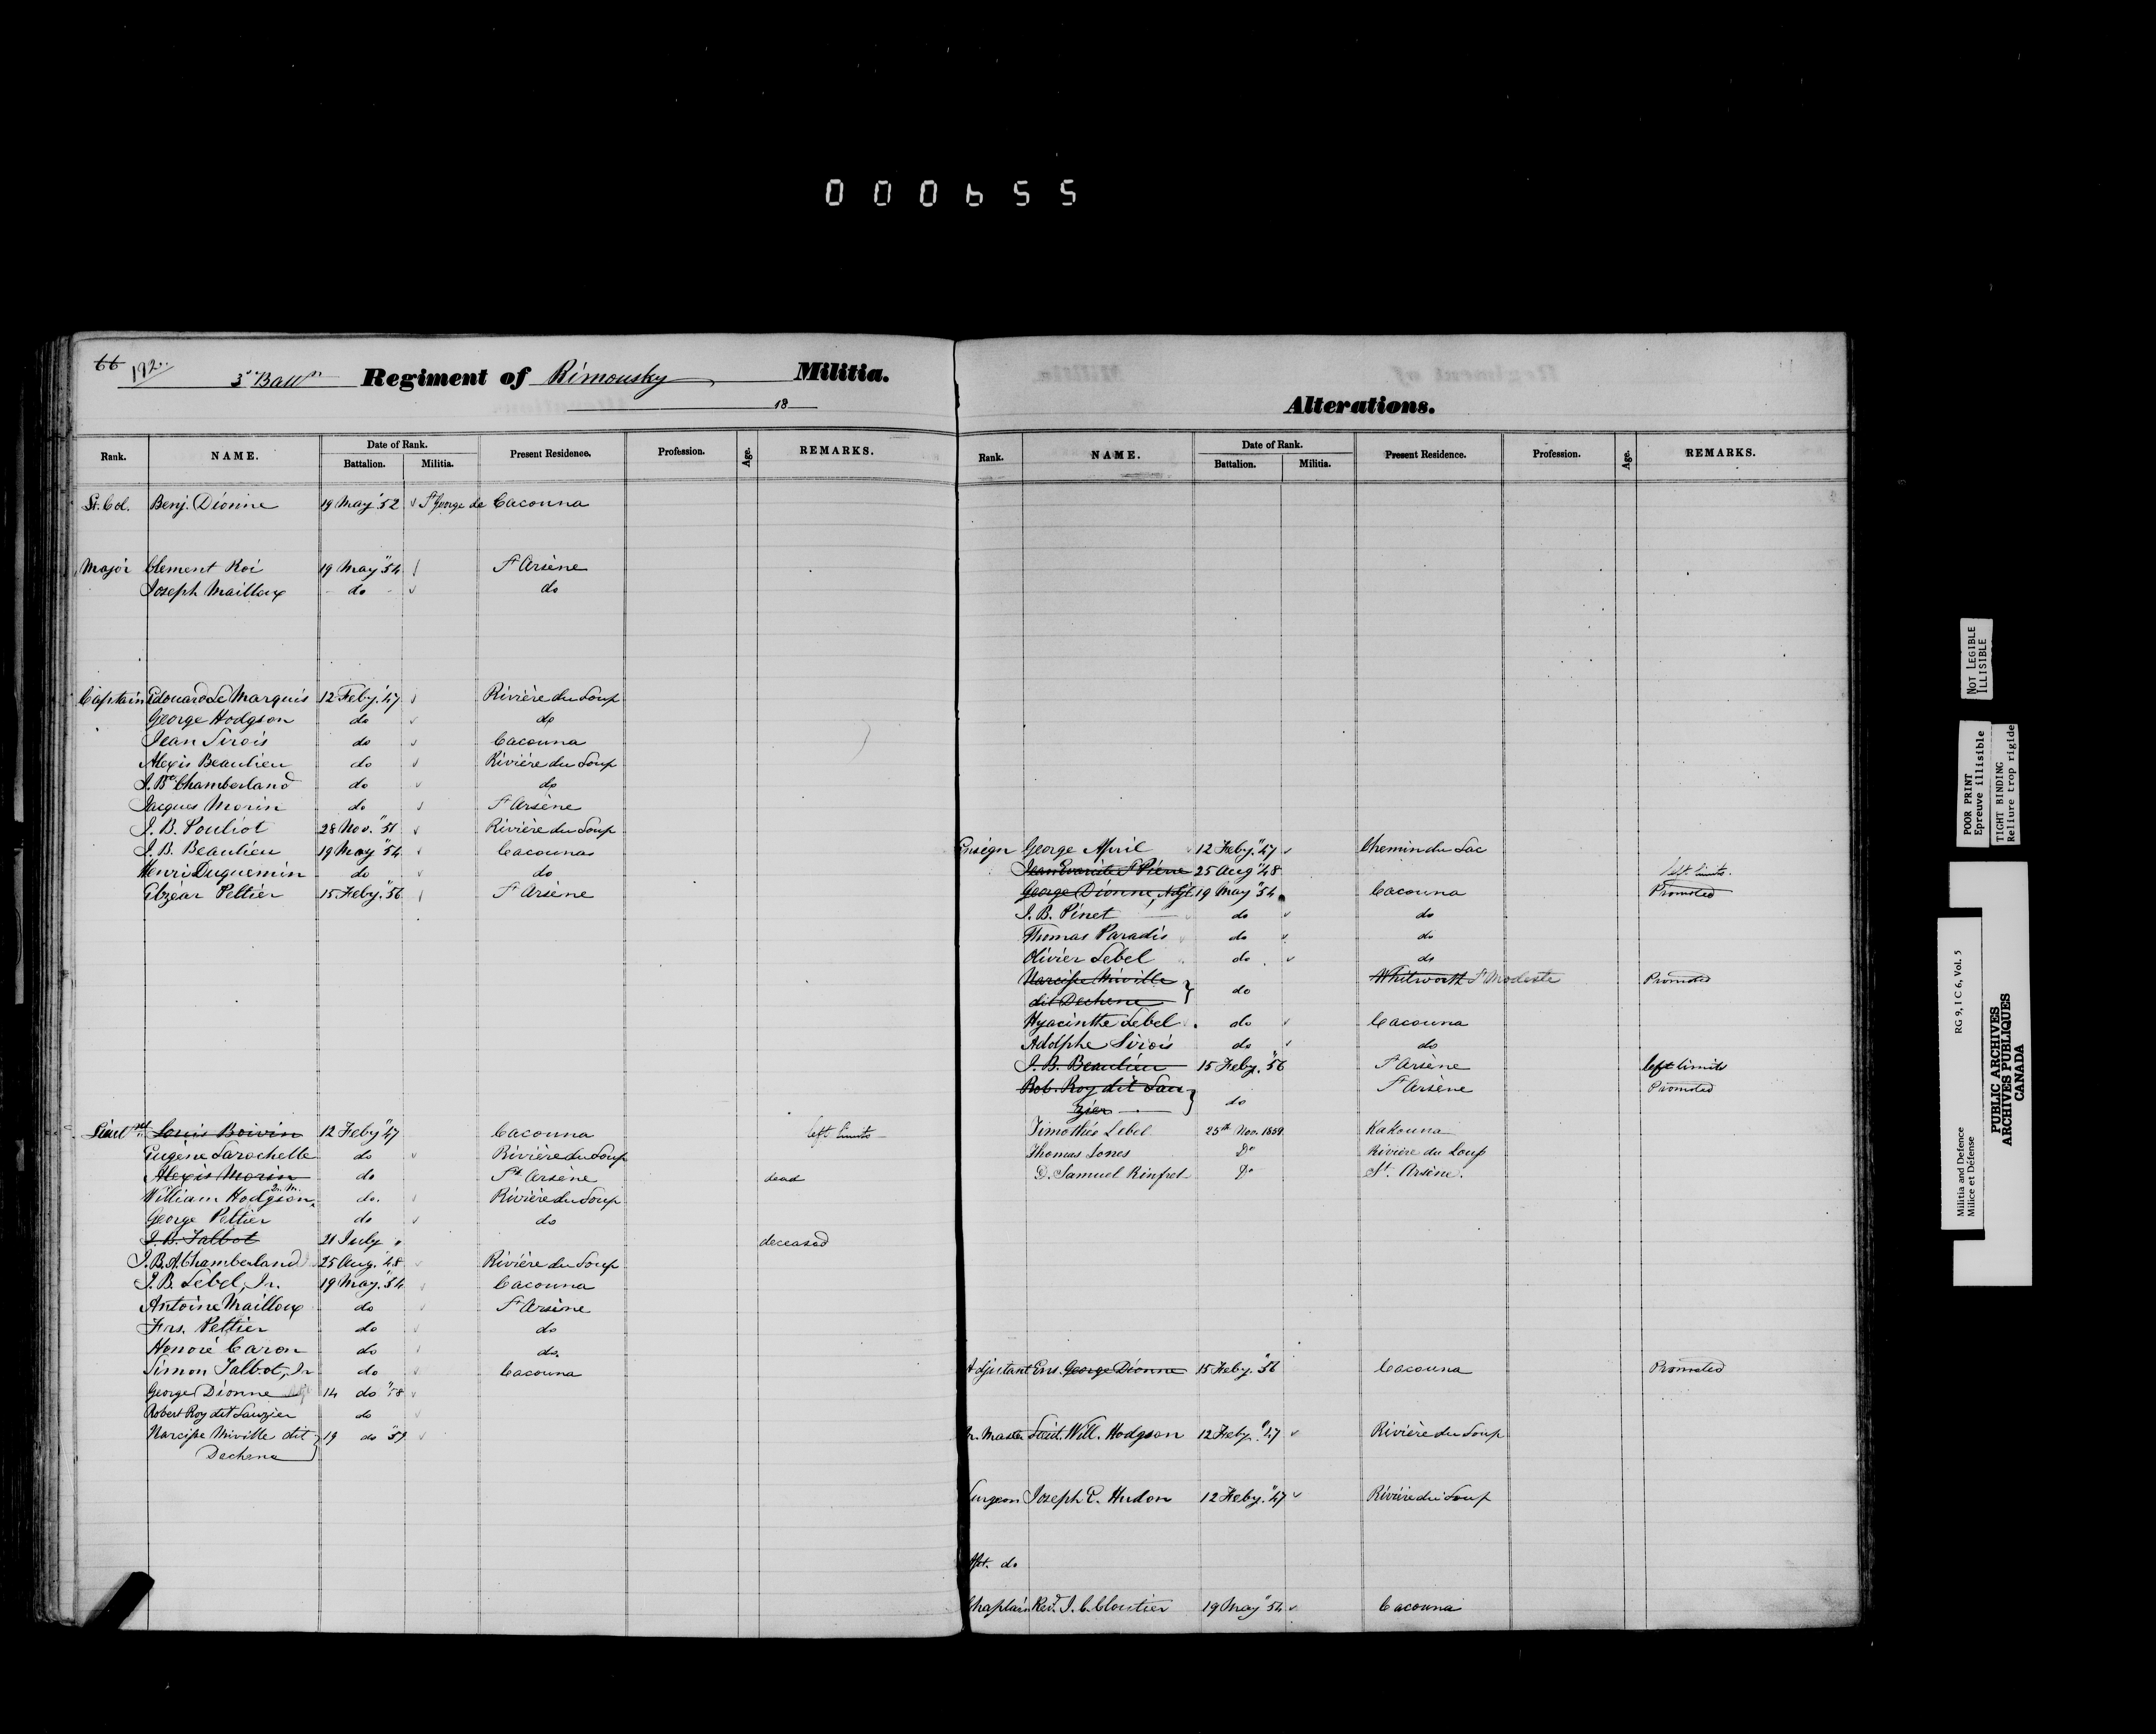 000655
66 192
3rd Battn Regiment of Rimousky Militia.
18
Rank. NAME. Date of Rank. Battalion. Militia. Present Residence. Profession. Age. REMARKS.
Lt. Col. Benj. Dionne 19 May "52 St George de Cacouna
Major Clement Roi 19 May "54 St Arsène
Joseph Mailloux do do
Captain Edouard Le Marquis 12 Feby. "47 Rivière du Loup
George Hodgson do do
Jean Sirois do Cacouna
Alexis Beaulieu do Rivière du Loup
J. Bte Chamberland do do
Jacques Morin do St Arsène
J. B. Pouliot 28 Nov. "51 Rivière du Loup
J. B. Beaulieu 19 May "54 Cacouna
Henri Duquemin do do
Elzéar Peltier 15 Feby. "56 St Arsène
Lieut Louis Boivin 12 Feby "47 Cacouna left limits
Eugène Larochelle do Rivière du Loup
Alexis Morin do St Arsène dead
William Hodgson Qr. M. do. Rivière du Loup
George Peltier do do
J. B. Talbot 21 July " deceased
J. B. A. Chamberland 25 Aug. "48 Rivière du Loup
J. B. Lebel, Jr. 19 May. "54 Cacouna
Antoine Mailloux do St Arsène
Frs. Peltier do do
Honoré Caron do do.
Simon Talbot, Jr do Cacouna
George Dionne Adjt 14 do "58
Robert Roy dit Lauzier do
Narcisse Miville dit 19 do "59
Dechene
Alterations.
Rank. NAME. Date of Rank. Battalion. Militia. Present Residence. Profession. Age. REMARKS.
Ensign George April 12 Feby. "47 Chemin du Lac
Jean Evariste St Pierre 25 Aug "48 left limits.
George Dionne, Adjt. 19 May "54 Cacouna Promoted
J. B. Pinet do do
Thomas Paradis do do
Olivier Lebel do do
Narcisse Miville do Whitworth St Modeste Promoted
dit Dechene
Hyacinthe Lebel do Cacouna
Adolphe Sirois do do
J. B. Beaulieu 15 Feby. "56 St Arsène left limits
Rob. Roy dit Lau do St Arsène Promoted
zier
Timothée Lebel 25th Nov. 1859 Kakouna
Thomas Jones Do Rivière du Loup
D. Samuel Rinfret Do St. Arsène.
Adjutant Ens. George Dionne 15 Feby. "56 Cacouna Promoted
Qr. Master Lieut. Will. Hodgson 12 Feby. "47 Rivière du Loup
Surgeon Joseph E. Hudon 12 Feby. "47 Rivière du Loup
Asst. do
Chaplain Revd. J. C. Cloutier 19 May "54 Cacouna
NOT LEGIBLE
ILLISIBLE
POOR PRINT
Epreuve illisible
TIGHT BINDING
Reliure trop rigide
Militia and Defence
Milice et Défense
RG 9, I C 6, Vol. 5
PUBLIC ARCHIVES
ARCHIVES PUBLIQUES
CANADA